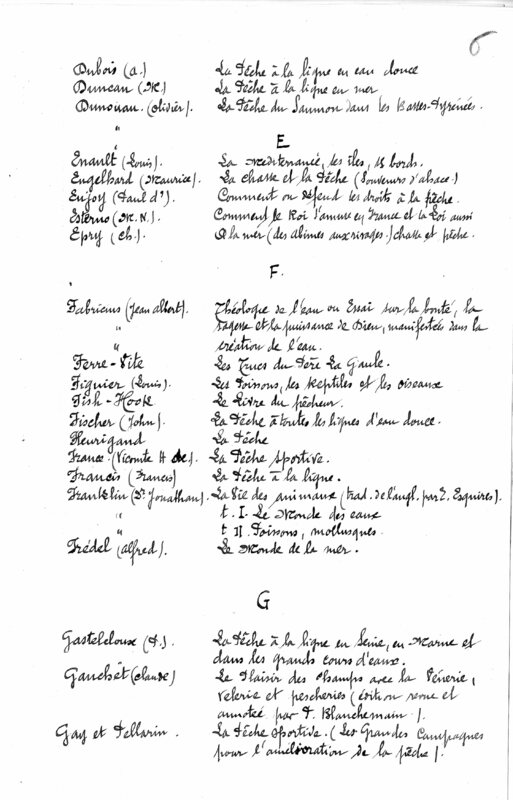 6
Dubois (A.) La Pêche à la ligne en eau douce
Duncan (M.) La Pêche à la ligne en mer
Dunouau. (Olivier). La Pêche du Saumon dans les Basses-Pyrénées.
"
E
Enault (Louis). La Mediterranée, ses îles, ses bords.
Engelhard (Maurice). La chasse et la Pêche (Souvenirs d'alsace.)
Enjoy (Paul d'). Comment on défend ses droits à la pêche.
Esterno (M. N.). Comment le Roi s'amuse en France et la Loi aussi
Epry (Ch.). A la mer (des abimes aux rivages.) chasse et pêche.
F.
Fabricius (Jean albert). Théologie de l'eau ou Essai sur la bonté, la
" sagesse et la puissance de Dieu, manifestées dans la
" création de l'eau.
Ferre-Vite Les Trucs du Père La Gaule.
Figuier (Louis). Les Poissons, les Reptiles et les oiseaux
Fish-Hook Le Livre du pêcheur.
Fischer (John). La Pêche à toutes les lignes d'eau douce.
Fleurigand La Pêche
France. (Vicomte H de). La Pêche sportive.
Francis (Francis) La Pêche à la ligne.
Franklin (Dr. Jonathan). La Vie des animaux (trad. de l'angl. par Esquires).
" t. I. Le Monde des eaux
" t II. Poissons, mollusques.
Frédol (alfred). Le Monde de la mer.
G
Gastelcloux (P.). La Pêche à la ligne en Seine, en Marne et
dans les grands cours d'eaux.
Gauchêt (claude) Le Plaisir des champs avec la Vénerie,
Volerie et pescheries (édition revue et
annotée par P. Blanchemain.).
Gay et Pellarin. La Pêche Sportive. (Les Grandes Campagnes
pour l'amélioration de la pêche).